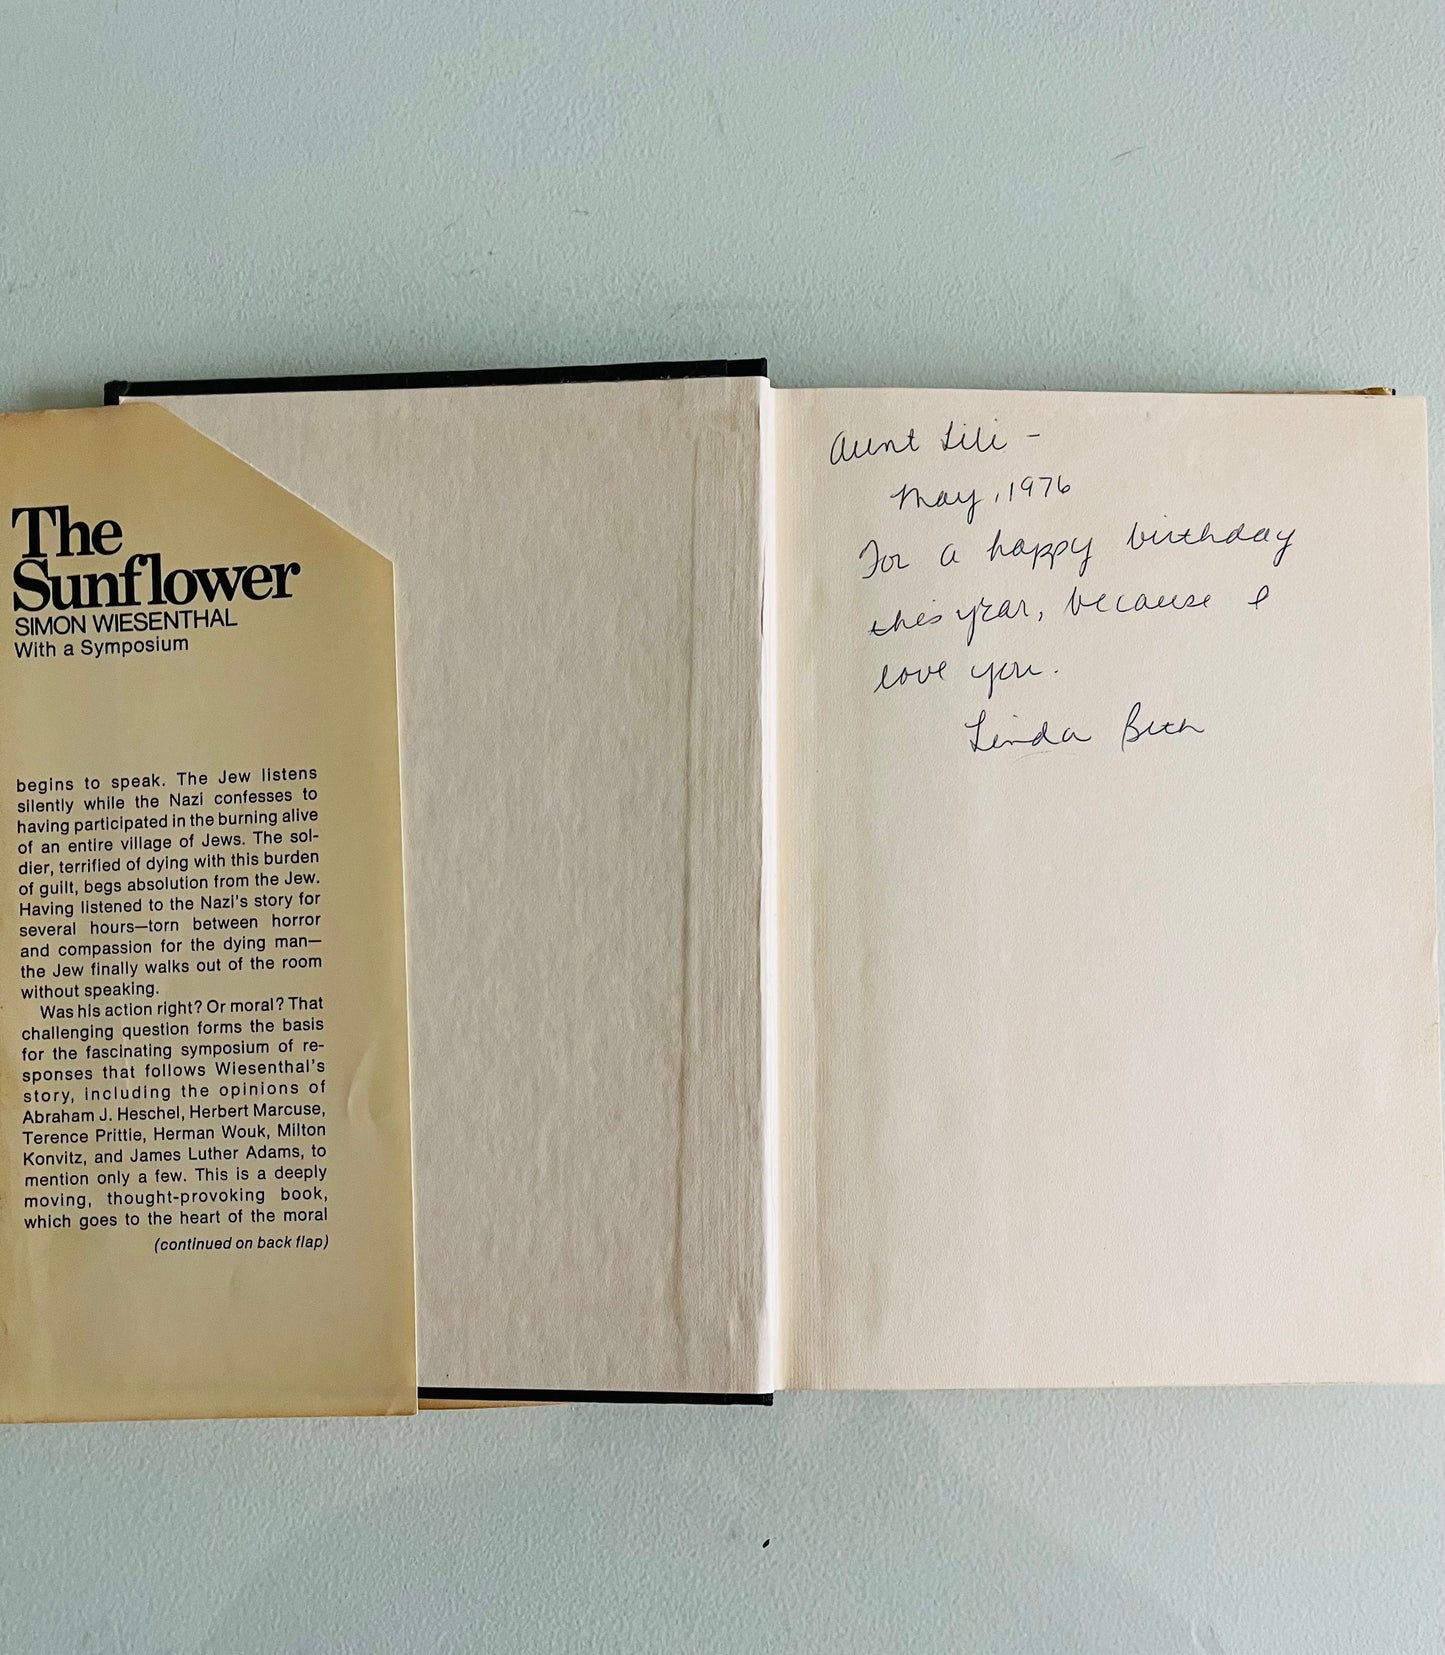 The
Sunflower
SIMON WIESENTHAL
With a Symposium
begins to speak. The Jew listens
silently while the Nazi confesses to
having participated in the burning alive
of an entire village of Jews. The sol-
dier, terrified of dying with this burden
of guilt, begs absolution from the Jew.
Having listened to the Nazi's story for
several hours—torn between horror
and compassion for the dying man—
the Jew finally walks out of the room
without speaking.
Was his action right? Or moral? That
challenging question forms the basis
for the fascinating symposium of re-
sponses that follows Wiesenthal's
story, including the opinions of
Abraham J. Heschel, Herbert Marcuse,
Terence Prittie, Herman Wouk, Milton
Konvitz, and James Luther Adams, to
mention only a few. This is a deeply
moving, thought-provoking book,
which goes to the heart of the moral
(continued on back flap)
Aunt Lili -
May, 1976
For a happy birthday
this year, because I
love you.
Linda Beth